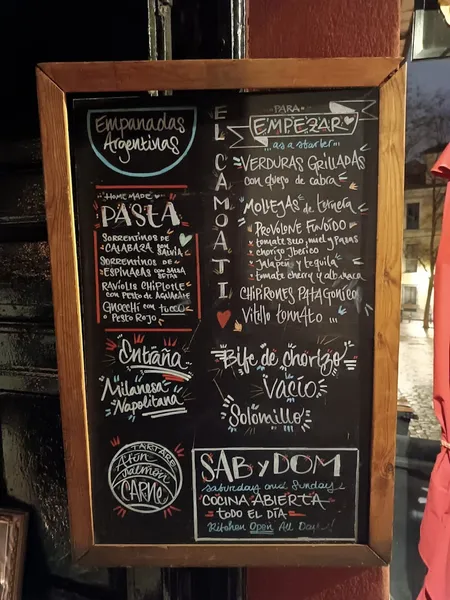 Empanadas
Argentinas
HOME MADE
PASTA
SORRENTINOS DE
CALABAZA CON
SALVIA
SORRENTINOS DE
ESPINACAS CON SALSA
SETAS
RAVIOLIS CHIPIONE
CON PESTO DE AGUACATE
GNOCCHI CON TUCO
O PESTO ROJO
Entraña
Milanesa
Napolitana
TARTARE
Atún
Salmón
CARNE
EL CAMOATI
PARA
EMPEZAR
as a starter
VERDURAS GRILLADAS
con queso de cabra
MOLLEJAS de ternera
PROVOLONE FUNDIDO
tomate seco, miel y pasas
chorizo Iberico
Jalapeño y tequila
tomate cherry y albahaca
CHIPIRONES PATAGONICO
Vitello tonnato ...
Bife de Chorizo
Vacio
Solomillo
SAB y DOM
Saturday and Sunday
COCINA ABIERTA
TODO EL DÍA
Kitchen Open All Day